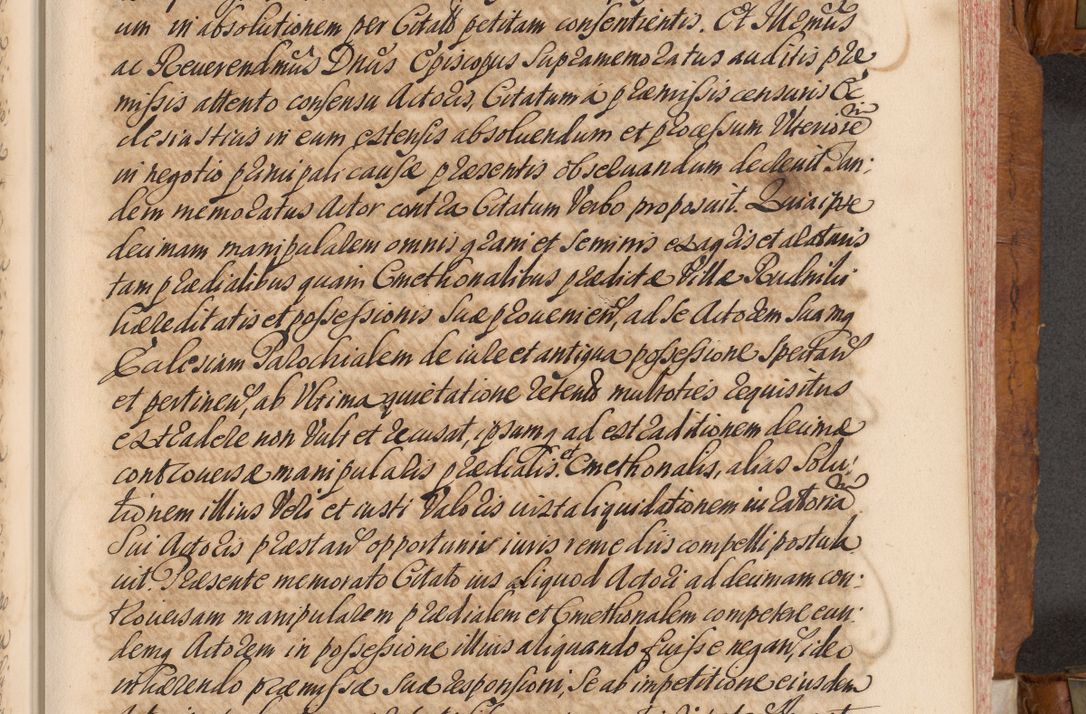 um in absolutionem per Citatũ petitam consentientis. Et Illẽmus
ac Reuerendmus Dnus Episcopus supramemoratus auditis præ
missis attento consensu Actoris, Citatum à præmissis censuris Ec
clesiasticis in eum extensis absoluendum et processum Vlteriorẽ
in negotio principali causæ præsentis obseruandum decreuit Tan:
dem memoratus Actor contra Citatum Verbo proposuit. Quia ipse
decimam manipularem omnis grani et seminis ex agris et
tam prædialibus quam Cmethonalibus prædictæ Villæ Rudniki
hæreditatis et possessionis suæ prouenien̄, ad se Actorem suamq
Ecclesiam Parochialem de iure et antiqua possessione spectan̄
et pertinen̄, ab Vltima quietatione retentã multoties requisitus
extradere non Vult et recusat, ipsumq ad extraditionem decimæ
controuersæ manipularis prædialis et Cmethonalis, alias Solu:
tionem illius Veri et iusti Valoris iuxta liquidationem iuratoriã
Sui Actoris præstan̄ opportunis iuris remediis compelli postula
uit. Præsente memorato Citato ius aliquod Actori ad decimam con:
trouersam manipularem prædialem et Cmethonalem competere eun:
demq Actorem in possessione illius aliquando fuisse negan̄, ideo
inhærendo præmissæ suæ responsioni, se ab impetitione eiusdem